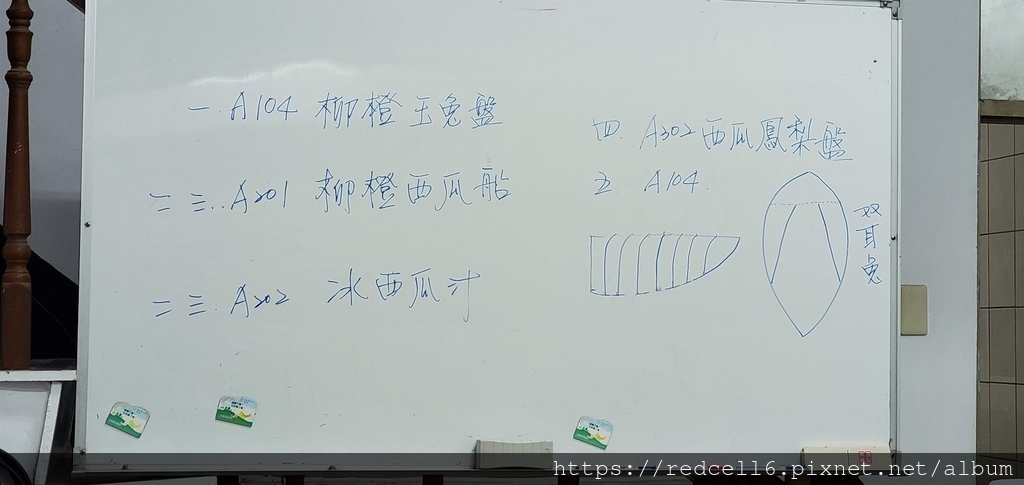 一. A104 柳橙玉兔盤
二三.. A201 柳橙西瓜船
二三. A202 冰西瓜汁
四. A302 西瓜鳳梨盤
五. A104.
双耳兔
https://redcell6.pixnet.net/album